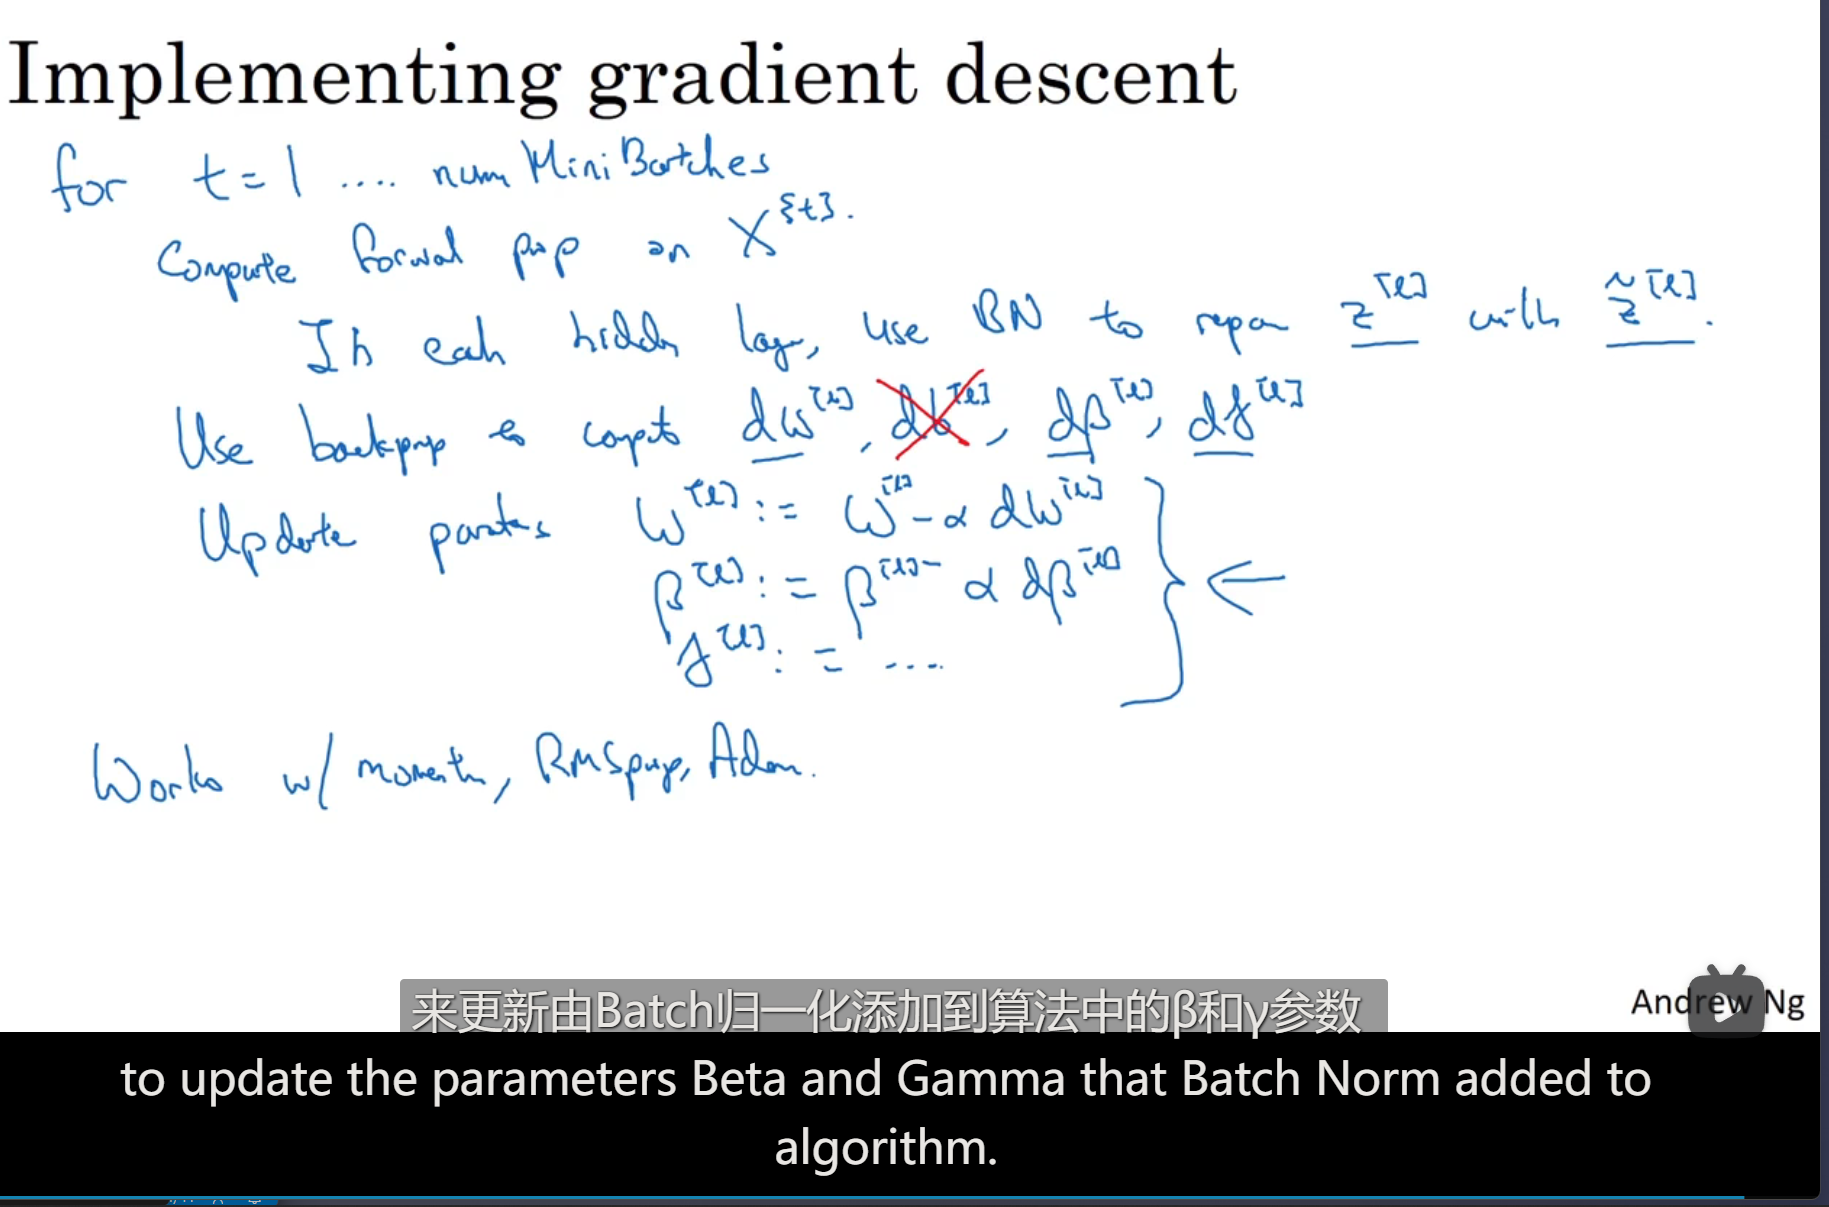 Implementing gradient descent
for t = 1 .... num MiniBatches
Compute forwal prop on X^{t}.
In eah hidden lay, use BN to repar z^[l] with z̃^[l].
Use backprop to compt dw^[l], db^[l], dβ^[l], dγ^[l]
Update
w^[l] := w^[l] - α dw^[l]
β^[l] := β^[l] - α dβ^[l]
γ^[l] := ....
Works w/ moment, RMSprop, Adam.
来更新由Batch归一化添加到算法中的β和γ参数
Andrew Ng
to update the parameters Beta and Gamma that Batch Norm added to
algorithm.